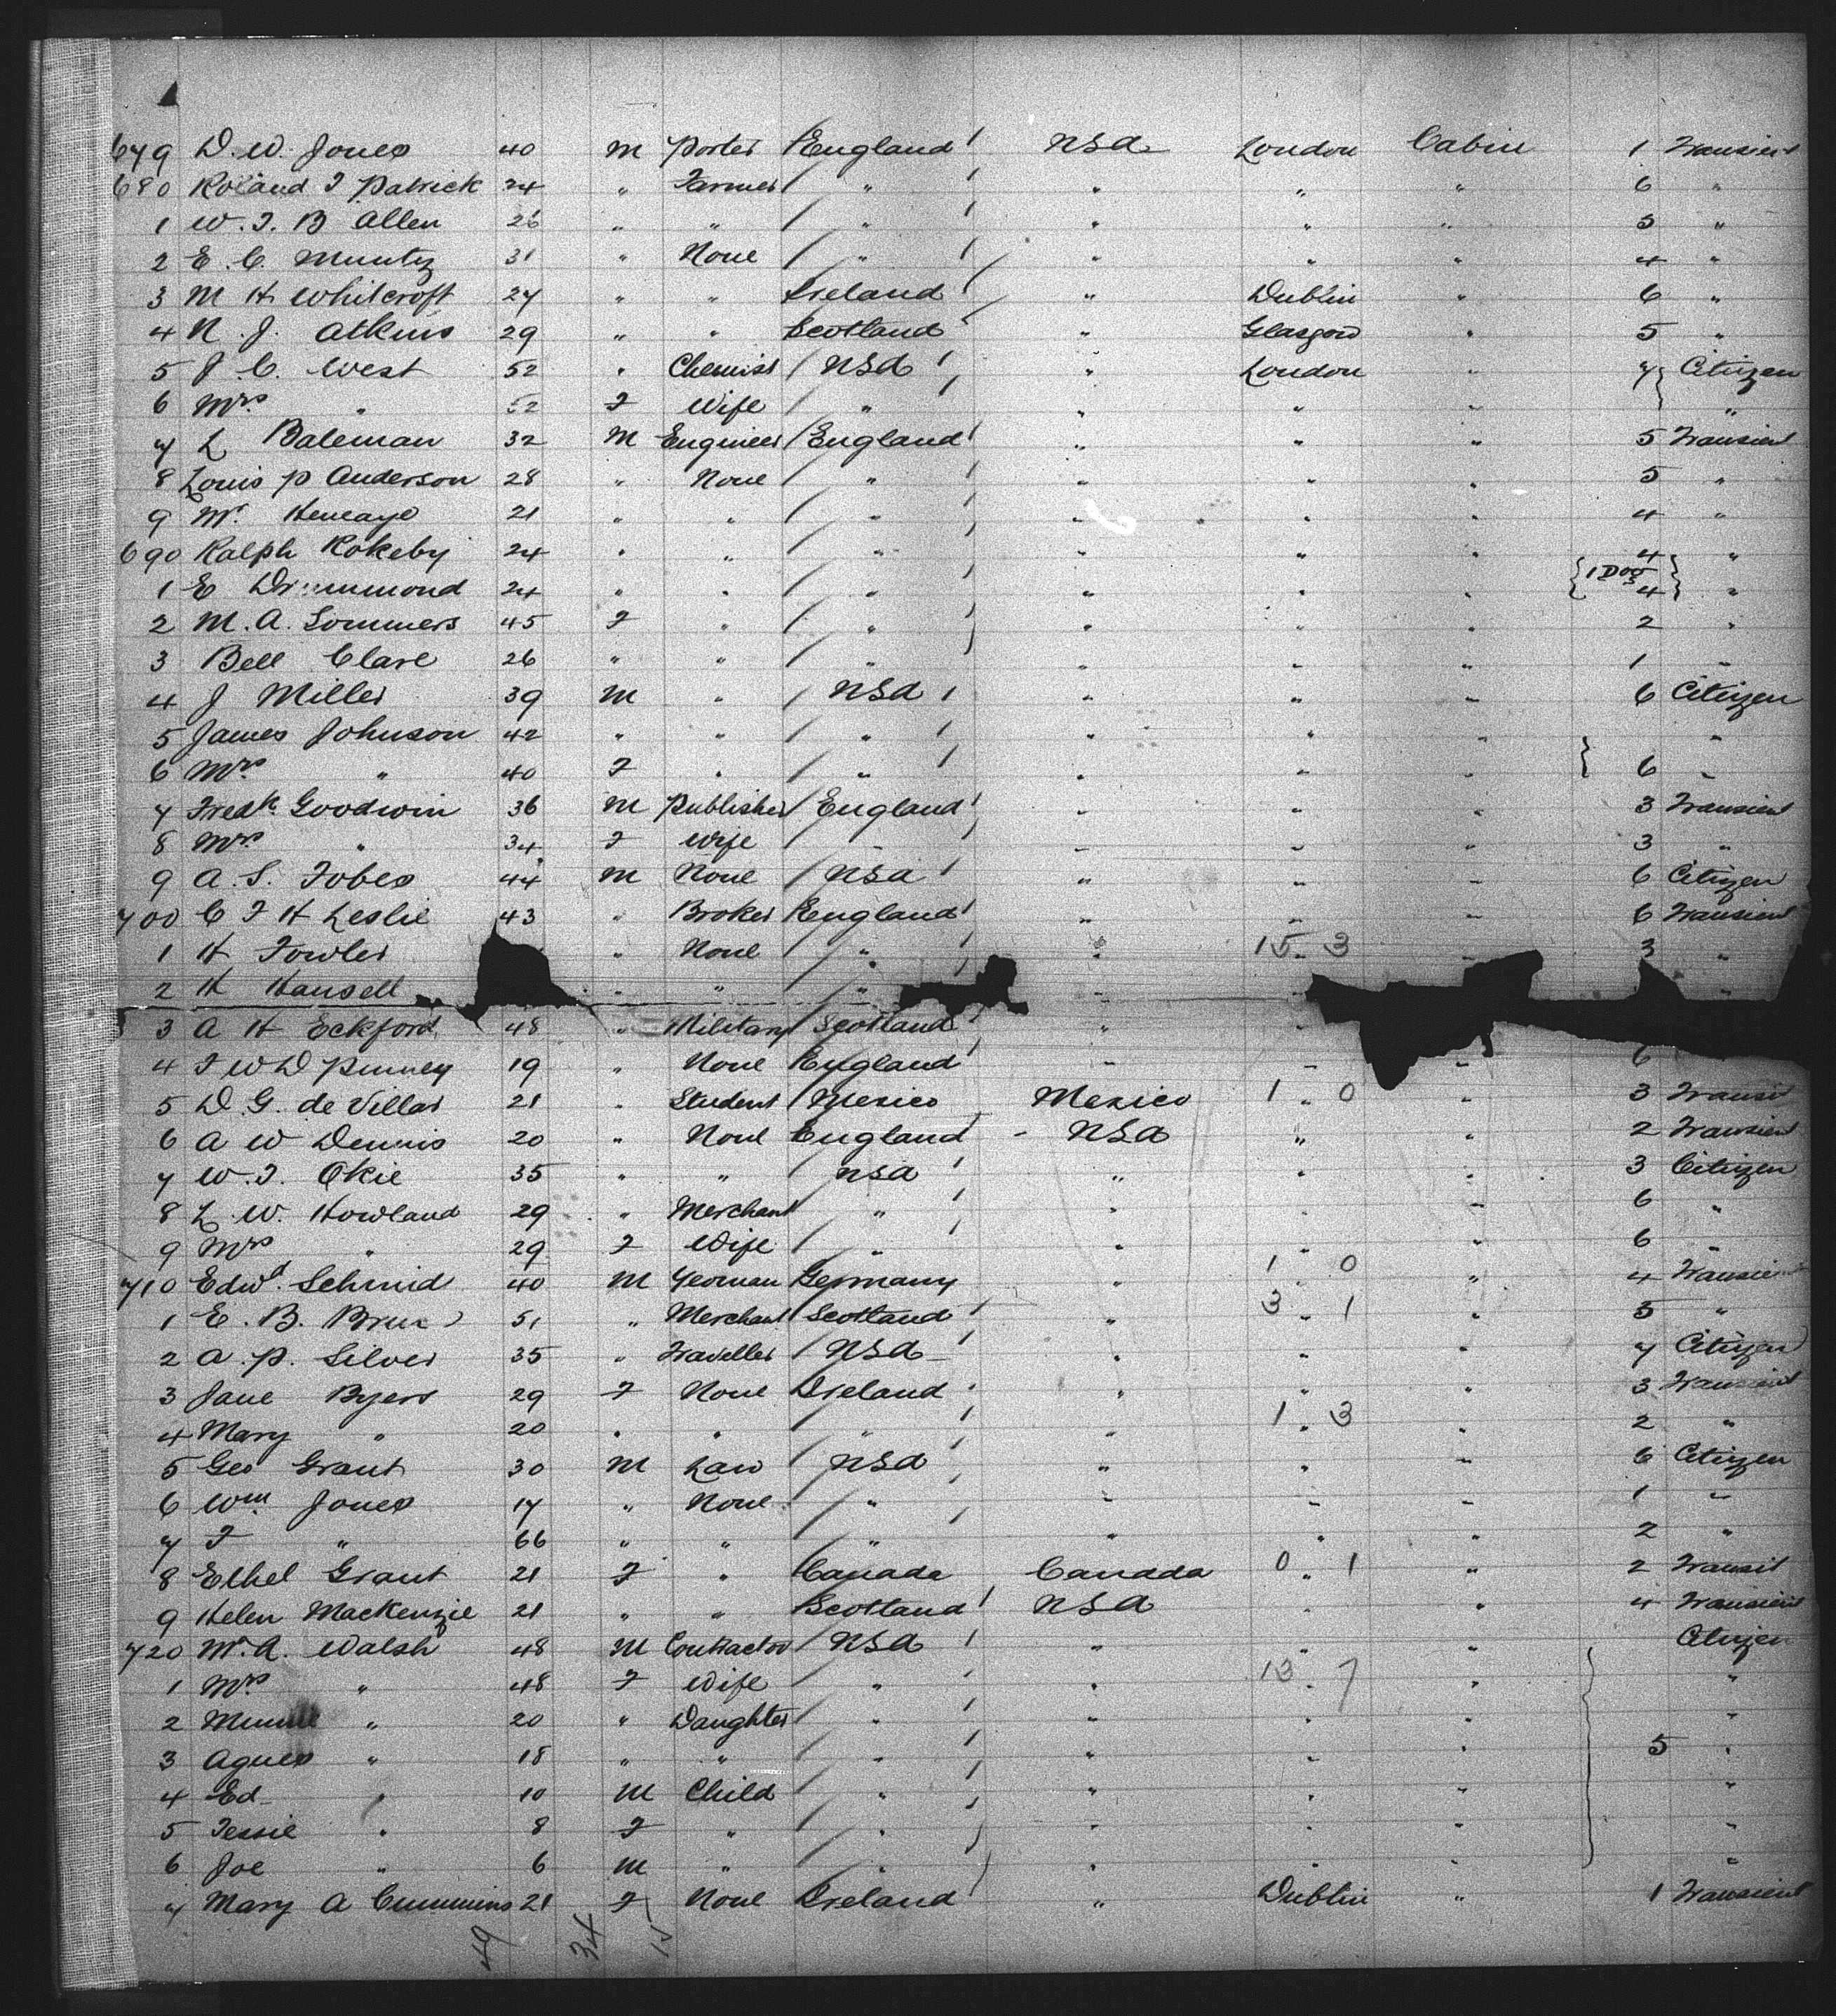 679 D. W. Jones 40 M Porter England USA London Cabin 1 Transient
680 Roland F Patrick 24 " Farmer " " " " 6 "
1 W. F. B Allen 26 " " " " " " 5 "
2 E. C. Muntz 31 " None " " " " 4 "
3 M H Whitcroft 27 " " Ireland " Dublin " 6 "
4 N. J. Atkins 29 " " Scotland " Glasgow " 5 "
5 J. C. West 52 " Chemist USA " London " 7 Citizen
6 Mrs " 52 F Wife " " " " "
7 L Bateman 32 M Engineer England " " " 5 Transient
8 Louis P Anderson 28 " None " " " " 5 "
9 Mr. Heneage 21 " " " " " " 4 "
690 Ralph Rokeby 24 " " " " " " 4 "
1 Dog
1 E Drummond 24 " " " " " " 4 "
2 M. A. Sommers 45 F " " " " " 2 "
3 Bell Clare 26 " " " " " " 1 "
4 J Miller 39 M " USA " " " 6 Citizen
5 James Johnson 42 " " " " " " "
6 Mrs " 40 F " " " " " 6 "
7 Fredk. Goodwin 36 M Publisher England " " " 3 Transient
8 Mrs " 34 F Wife " " " " 3 "
9 A. S. Fobes 44 M None USA " " " 6 Citizen
700 C F H Leslie 43 " Broker England " " " 6 Transient
1 H Fowler " None " " 15 3 " 3 "
2 H Hansell " " " " "
3 A H Eckford 48 " Military Scotland " "
4 F W D Pinney 19 " None England " " " 6
5 D. G. de Villar 21 " Student Mexico Mexico 1 " 0 " 3 Transit
6 A W Dennis 20 " None England USA " " 2 Transient
7 W. F. Okie 35 " " USA " " " 3 Citizen
8 L. W. Howland 29 " Merchant " " " " 6 "
9 Mrs " 29 F Wife " " " " 6 "
710 Edwd. Schmid 40 M Yeoman Germany " 1 0 " 4 Transient
1 E. B. 51 " Merchant Scotland " 3 1 " 5 "
2 A. P. Silver 35 " Traveller USA " " " 7 Citizen
3 Jane Byers 29 F None Ireland " " " 3 Transient
4 Mary " 20 " " " " 1 3 " 2 "
5 Geo Grant 30 M Law USA " " " 6 Citizen
6 Wm Jones 17 " None " " " " 1 "
7 F " 66 " " " " " " 2 "
8 Ethel Grant 21 F " Canada Canada 0 1 " 2 Transit
9 Helen Mackenzie 21 " " Scotland USA " " 4 Transient
720 Mr. A. Walsh 48 M Contractor USA " " " Citizen
1 Mrs " 48 F Wife " " 13 7 " "
2 Minnie " 20 " Daughter " " " " "
3 Agnes " 18 " " " " " " 5 "
4 Ed " 10 M Child " " " " "
5 Tessie " 8 F " " " " " "
6 Joe " 6 M " " " " " "
7 Mary A Cummins 21 F None Ireland " Dublin " 1 Transient
49 34 15